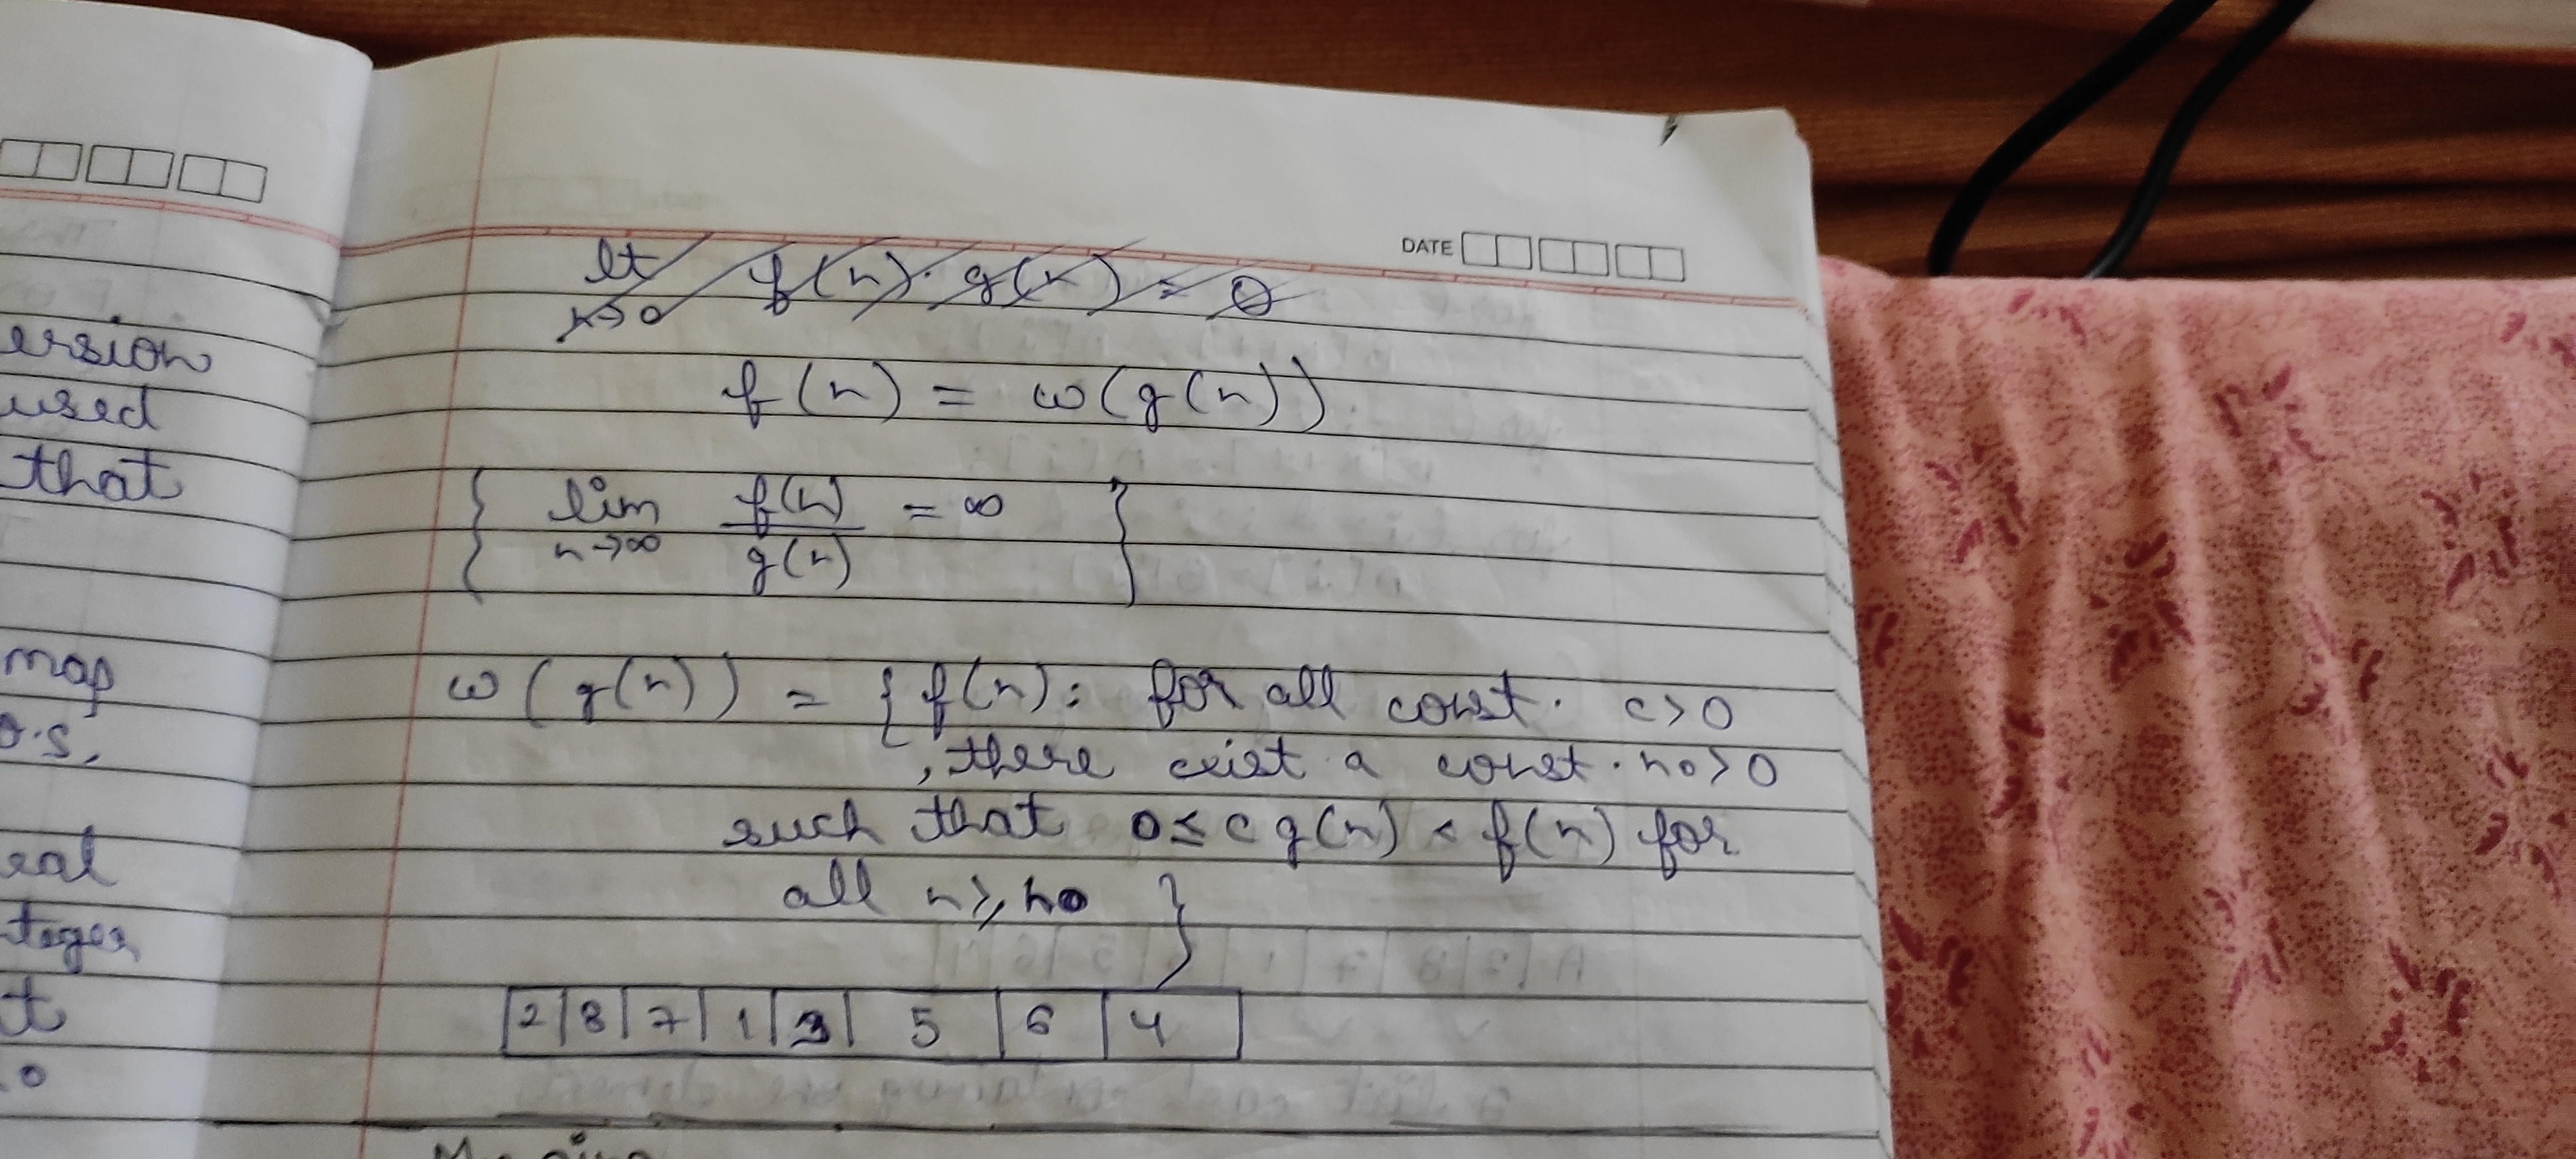 ersion
used
that
map
o.s.
eal
t
DATE
lt f(n). g(x) = 0
x→0
f(n) = ω(g(n))
{ lim f(n) = ∞ }
n→∞ g(n)
ω(g(n)) = { f(n): for all const. c>0
, there exist a const. n0>0
such that 0≤ c g(n) < f(n) for
all n≥n0 }
2 8 7 1 3 5 6 4